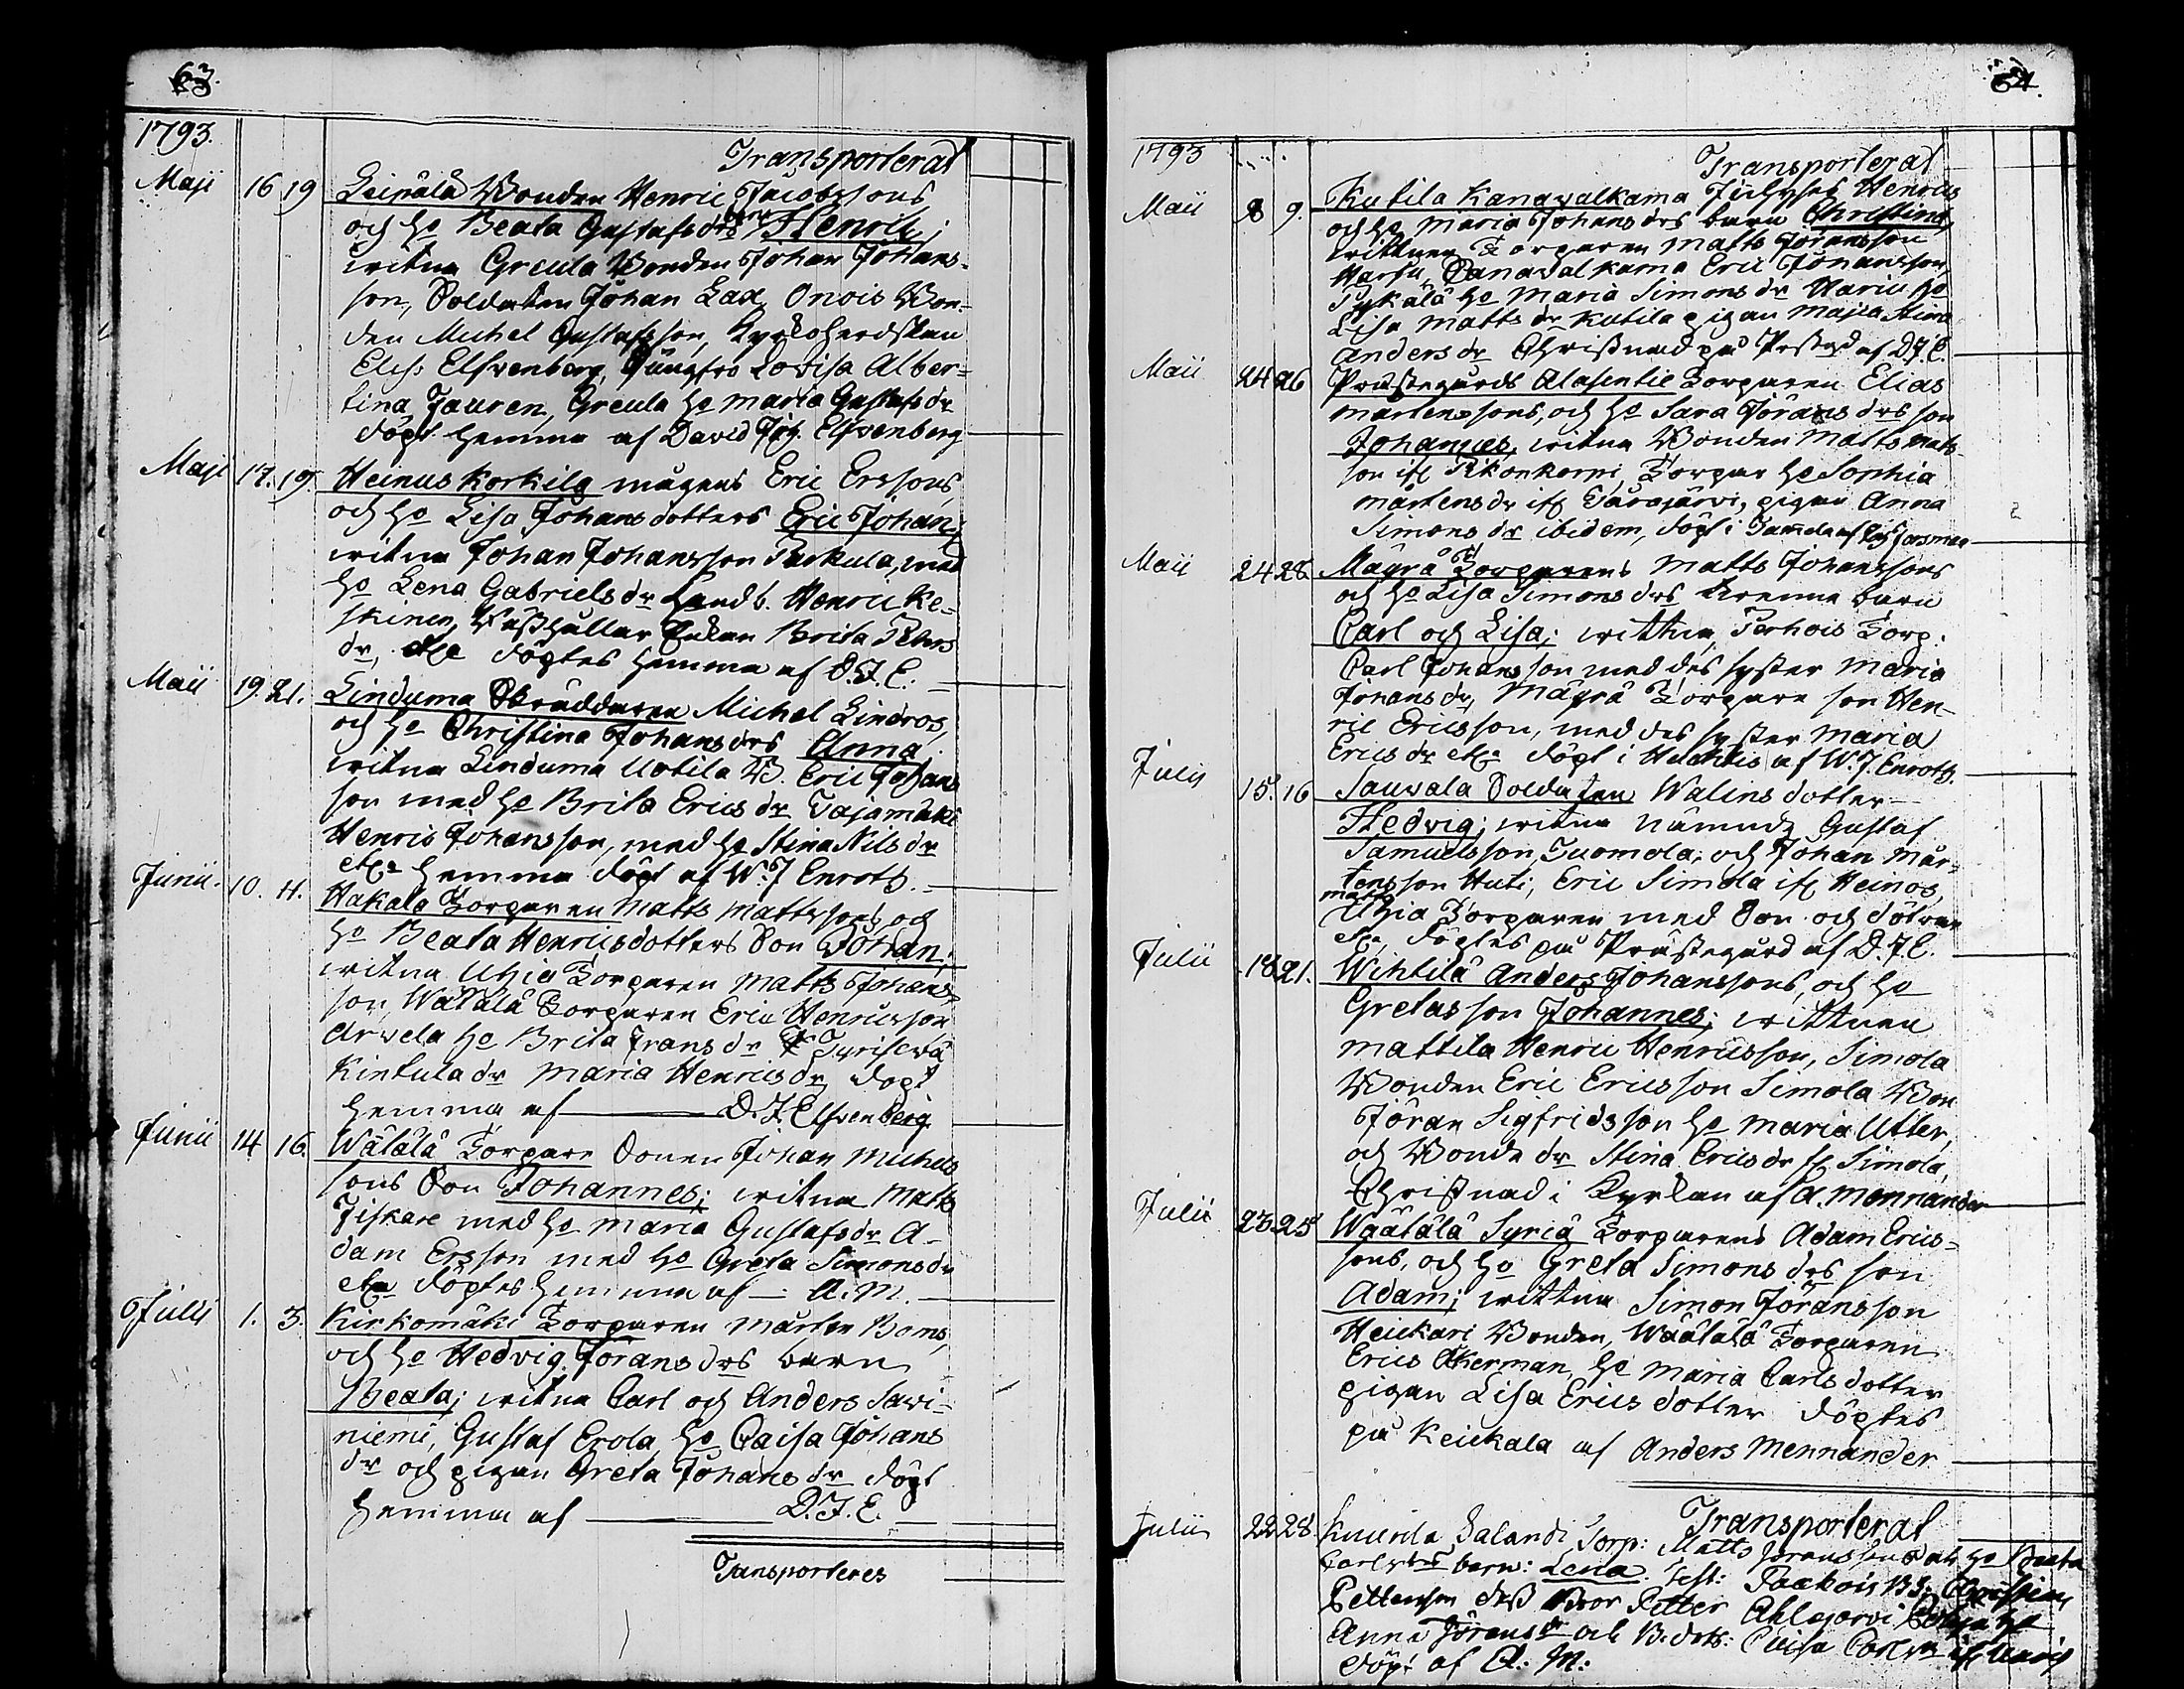 63.
1793.
Transporterat
Maji 16 19 Leipälä Bonden Henric Jacobssons
och ho Beata Gustafsdrs barn Henric;
witna Greula Bonden Johan Johans-
son, Soldaten Johan Lax, Onois Bon-
den Michel Gustafsson, Kyrkoherdskan
Elis: Elfvenberg, Jungfro Lovisa Alber-
tina Jauren, Greula ho Maria Gustafs dr
döpt hemma af David Joh. Elfvenberg
Maji 17. 19. Heinus Korkila mågens Eric Erssons
och ho Lisa Johansdotters Eric Johan;
witna Johan Johansson Parkula, med
ho Lena Gabriels dr Landb. Henric Ke-
skinen, Enkan Brita Pehrs
dr, etc döptes hemma af D.J.E.
Maii 19. 21. Linduma Skräddaren Michel Lindros,
och ho Christina Johans drs Anna
witna Linduma Uotila B. Eric Johans
son med ho Brita Erics dr Tajamäki
Henric Johansson, med ho Stina Nils dr
etc hemma döpt af W. J Enroth.
Junii 10. 11. Hakala Torparen Matts Mattssons och
ho Beata Henricsdotters Son Johan;
witna Uhia Torparen Matts Johans-
son, Wätälä Torparen Eric Henricsson
Arvela ho Brita Frans dr Tyrisewä
Kintula dr Maria Henrics dr döpt
hemma af D.J. Elfvenberg
Junii 14 16. Wätälä Torpare Sonen Johan Michels
sons Son Johannes; witna Matts
Fiskare med ho Maria Gustafs dr A-
dam Ersson med ho Greta Simons dr
etc döptes hemma af A.M.
Julii 1. 3. Kirkomäki Torparen Mårten Boms,
och ho Hedvig Jörans drs barn
Beata; witna Carl och Anders Savi-
niemi, Gustaf Erola, ho Caisa Johans
dr och pigan Greta Johans dr döpt
hemma af D.J.E.
Transporteres
64.
1793
Transporterat
Maii 8 9. Kutila Kanawalkama Henrics
och ho Maria Johans drs barn Christina,
wittnen Torparen Matts Jöransson
Harju, Canavalkama Eric Johansson,
Pykälä ho Maria Simons dr Harju ho
Lisa Matts dr Kutila pigan Majia Stina
Anders dr Christnad på Prästgd af D.J.E.
Maii 24 26 Prästegårds Alasentie Torparen Elias
Mårtenssons, och ho Sara Jörans drs son
Johannes, witna Bonden Matts Matts
son if Rikonkorpi, Torpar ho Sophia
Mårtens dr if Särajärvi, pigan Anna
Simons dr ibidem, döpt i
Maii 24 28 Mäyrä Torparens Matts Johanssons
och ho Lisa Simons drs barn
Carl och Lisa; wittna, Perhois Torp:
Carl Johansson med des syster Maria
Johans dr, Mäyrä Torpare son Hen-
ric Ericsson, med des syster Maria
Erics dr etc döpt i af W.J. Enroth.
Julii 15. 16 Sauvala Soldaten Walins dotter
Hedvig; witna Nämnd: Gustaf
Samuelsson, Tuomola, och Johan Mår-
tensson Huti, Eric Simola if Heinos,
Matts
Uhia Torparen med Son och dötrar
etc, döptes på Prästegård af D.J.E.
Julii 18 21. Wihtilä Anders Johanssons, och ho
Gretas son Johannes; wittnen
Mattila Henric Henricsson, Simola
Bonden Eric Ericsson Simola Bon
Jöran Sigfridsson ho Maria Utter,
och Bonde dr Stina Erics dr if Simola,
Christnad i Kyrkan af A. Mennander
Julii 23 25 Wäätälä Syriä Torparens Adam Erics-
sons, och ho Greta Simons drs son
Adam; wittna Simon Jöransson
Heickari Bonden, Wäätälä Torparen
Erics Åkerman, ho Maria Carls dotter
pigan Lisa Erics dotter döptes
på Keickala af Anders Mennander
Transporterat
Julii 22 28 Knuutila Salandi Torp: Matts Jöransson och ho Beata
barn: Lena. Test: Paakois
Petterson deß Bror Petter Ahlajärvi
Anna Jörans dr och B. drtr: Caisa Carls dr
döpt af A: M: